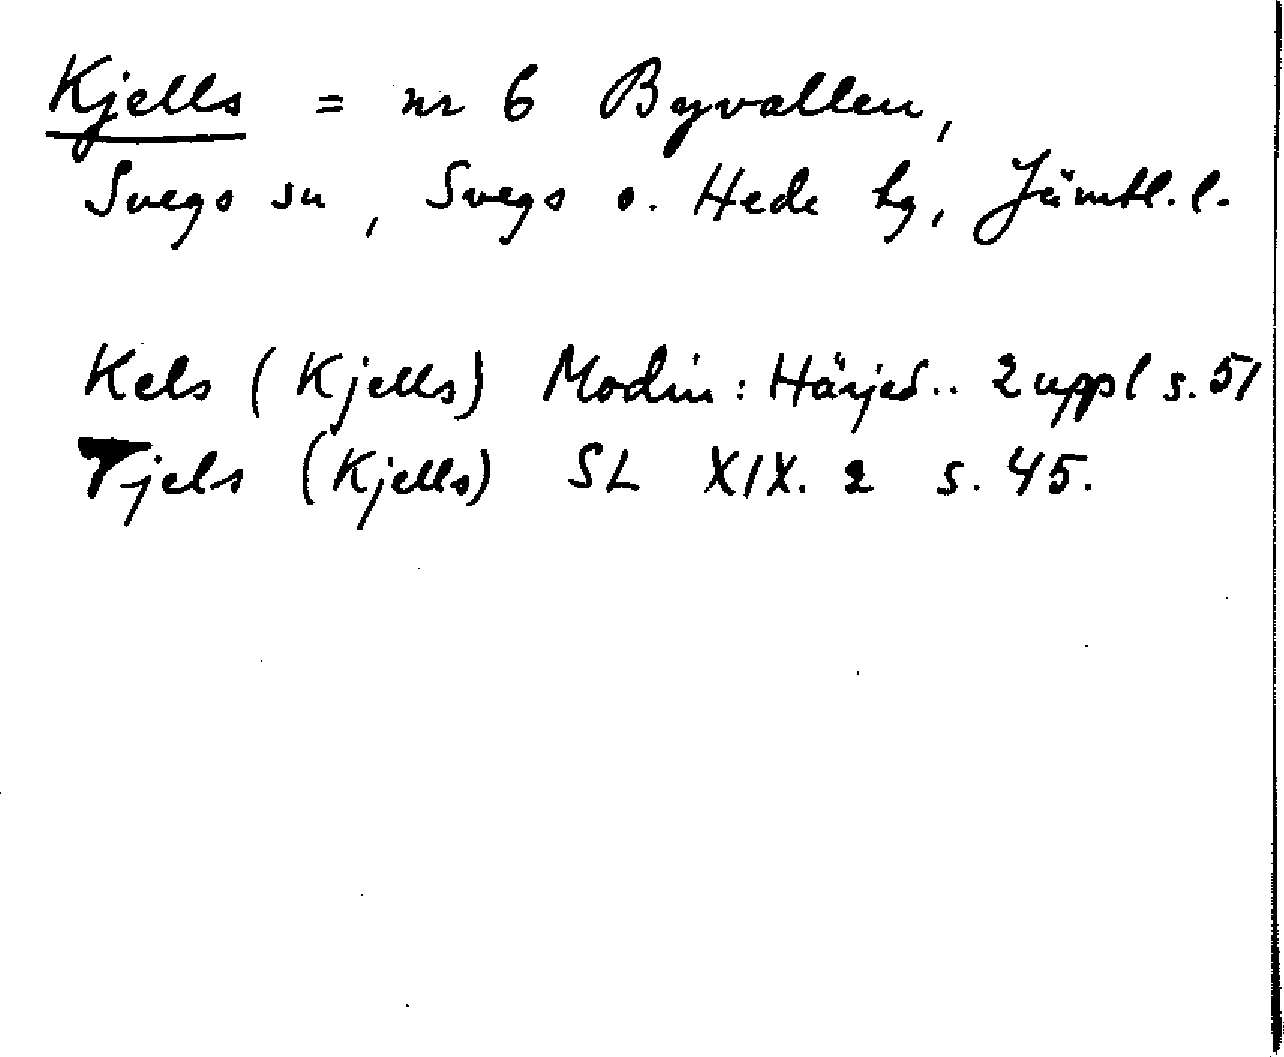 Kjells = nr 6 Byvallen,
Svegs sn, Svegs o. Hede hg, Jämtl. l.
Kels (Kjells) Modin: Härjed.. 2 uppl s. 51
Tjels (Kjells) SL XIX. 2 s. 45.